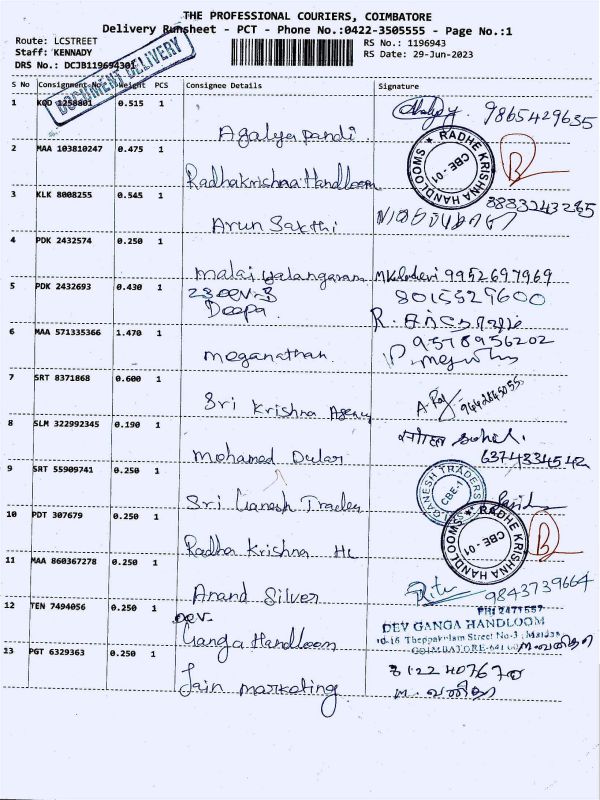 THE PROFESSIONAL COURIERS, COIMBATORE
Delivery Runsheet - PCT - Phone No.:0422-3505555 - Page No.:1
Route: LCSTREET
RS No.: 1196943
Staff: KENNADY
RS Date: 29-Jun-2023
DRS No.: DCJB119694301
DOCUMENT DELIVERY
S No Consignment No. Weight PCS Consignee Details Signature
1 KOD 1258801 0.515 1
Agalya pandi 9865429635
2 MAA 103810247 0.475 1
RADHE KRISHNA HANDLOOMS CBE-01
Radhakrishna Handloom
3 KLK 8008255 0.545 1
Arun Sakthi
4 PDK 2432574 0.250 1
malai yalangaram 9952697969
5 PDK 2432693 0.430 1
8015529600
Deepa
6 MAA 571335366 1.470 1
9578956202
meganathan
7 SRT 8371868 0.600 1
Sri Krishna Agency A. Raj
8 SLM 322992345 0.190 1
Mohamed Dular 6374334542
9 SRT 55909741 0.250 1
GANESH TRADERS CBE-1
Sri Ganesh Trader
10 PDT 307679 0.250 1
RADHE KRISHNA HANDLOOMS CBE-01
Radha Krishna HL
11 MAA 860367278 0.250 1
Anand Silver 9843739664
12 TEN 7494056 0.250 1
PH: 2471557
DEV GANGA HANDLOOM
10-16 Theppakulam Street No-3, Maidan
COIMBATORE-641 001
Dev.
Ganga Handloom
13 PGT 6329363 0.250 1
8122407670
Jain marketing